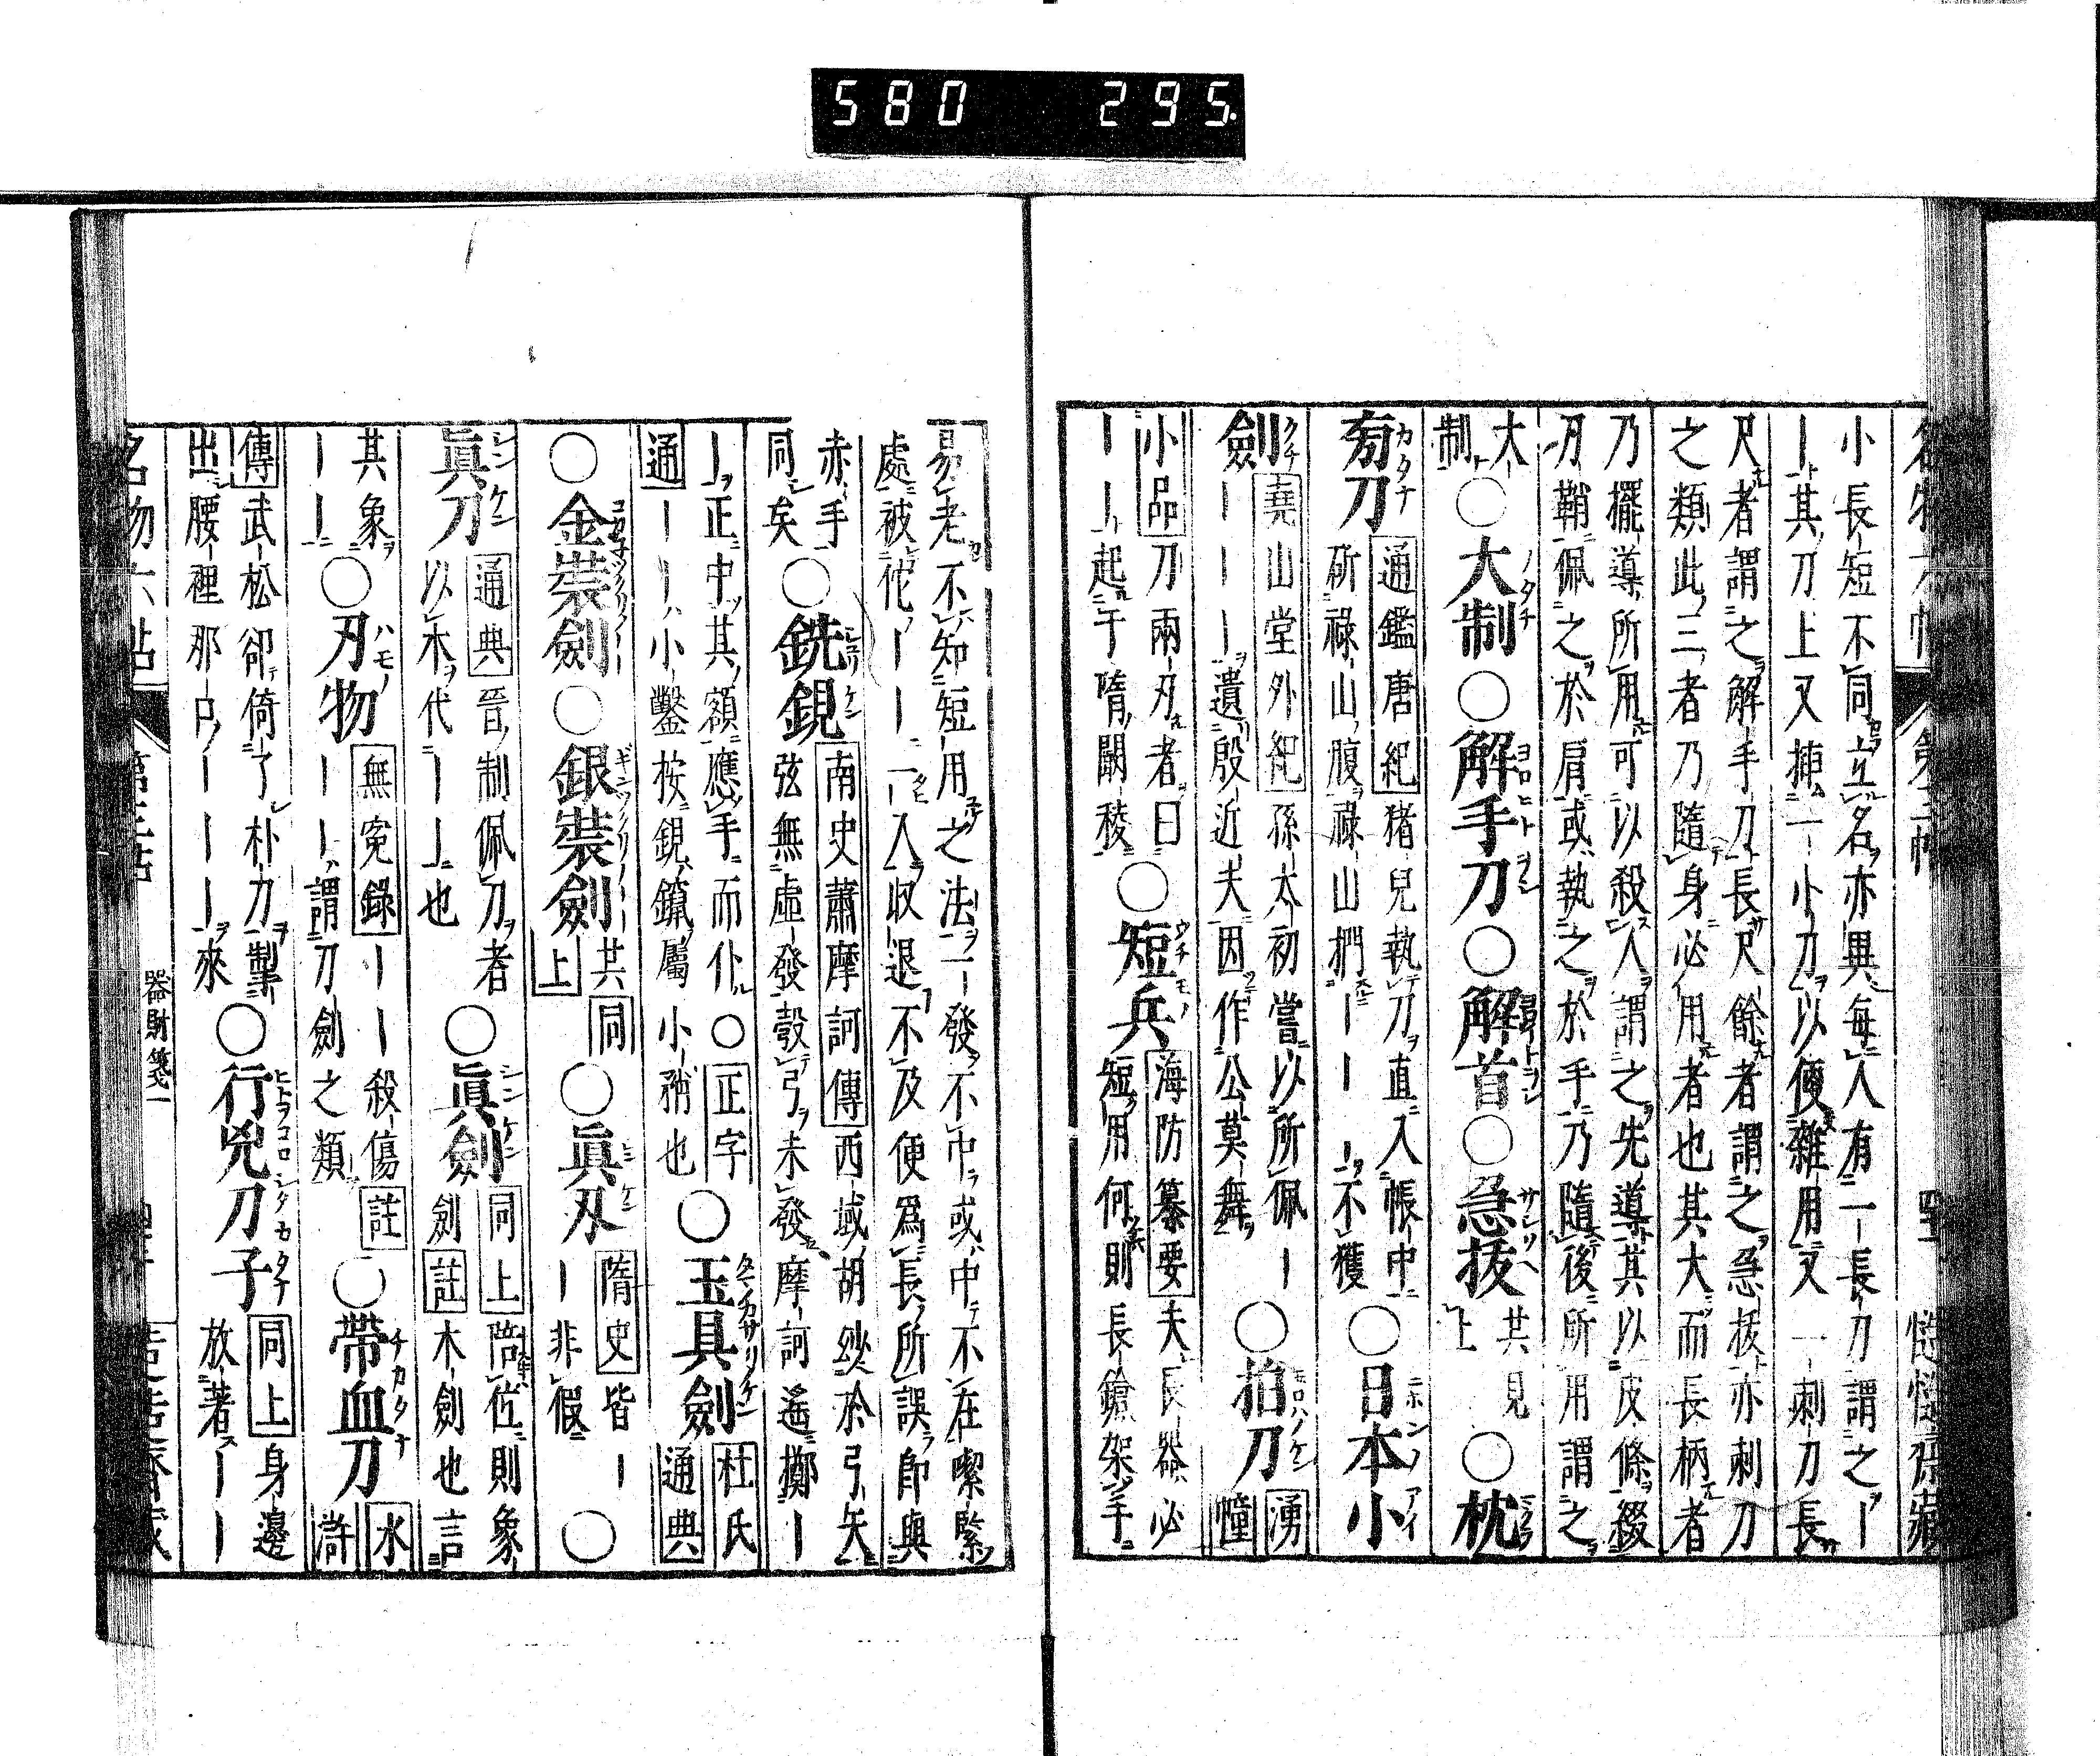 580 295
小長短不同立名亦異每人有一長刀謂之｜
｜其刀上又挿一小刀以便雜用又一刺刀長
尺者謂之解手刀長尺餘者謂之急拔亦刺刀
之類此三者乃隨身必用者也其大而長柄者
乃擺導所用可以殺人謂之先導其以皮條綴
刀鞘佩之於肩或執之於手乃隨後所用謂之
大制○大制○解手刀○解首○急拔 共見上○枕
刀 通鑑唐紀 猪兒執刀直入帳中
斫祿山腹祿山捫｜｜｜不獲○日本小
劍 堯山堂外紀 孫太初嘗以所佩｜
｜｜｜遺殷近夫因作公莫舞○拍刀 湧幢
小品 刀兩刃者曰
｜｜起于隋闞稜○短兵 海防纂要 夫長器必
短用何則長鎗架手
易老不知短用之法一發不中或中不在喫緊
處被他｜｜一入收退不及便爲長所誤卽與
赤手
同矣○銑鋧 南史蕭摩訶傳 西域胡妙於弓矢
弦無虛發彀弓未發摩訶遙擲｜
｜正中其額應手而仆○正字
通 ｜｜小鑿按鋧鑕屬小矟也○玉具劍 杜氏通典
○金裝劍○銀裝劍 共同上○眞刃 隋史 皆｜
｜非假○
眞刀 通典 晉制佩刀者
以木代｜｜也○眞劍 同上 陪位則象
劍 註 木劍也言
其象
｜｜○刃物 無寃錄 ｜｜殺傷 註
｜｜謂刀劍之類○帶血刀 水滸
傳 武松卻倚了朴刀掣
出腰裡那口｜｜｜｜來○行兇刀子 同上 身邊
放著｜｜
器財箋一